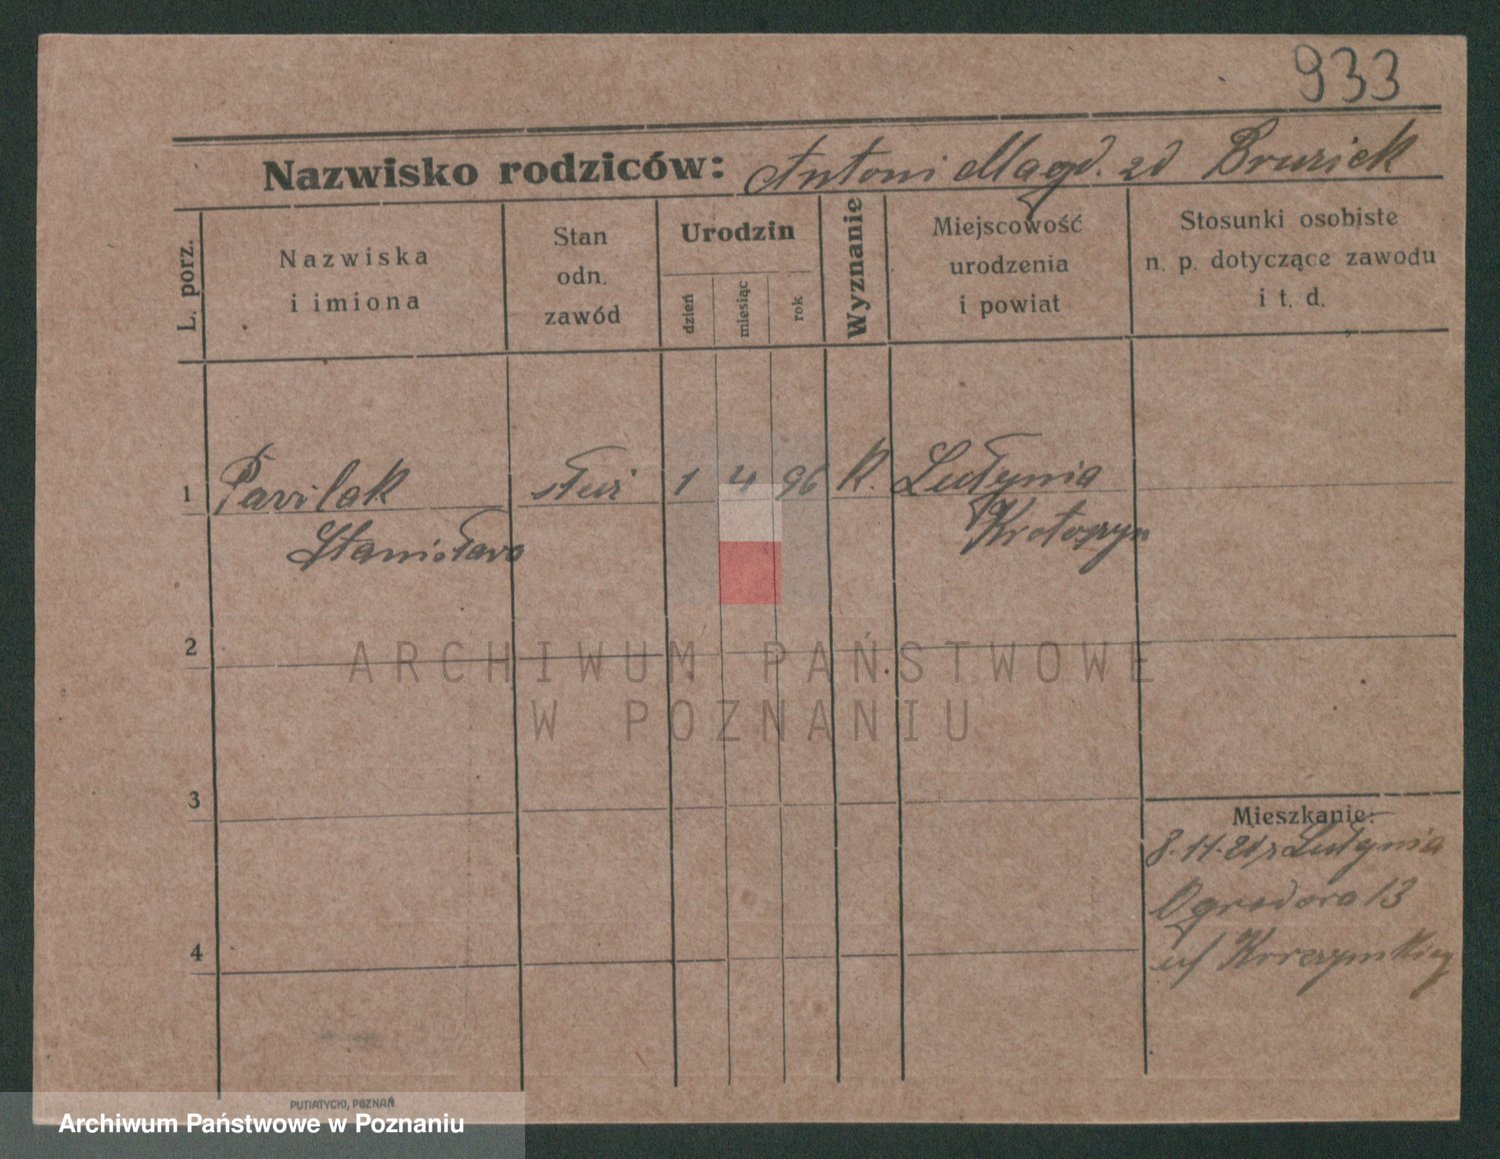 933
Nazwisko rodziców: Antoni Magd. zd Bruziek
L. porz.
Nazwiska
i imiona
Stan
odn.
zawód
Urodzin
dzień
miesiąc
rok
Wyznanie
Miejscowość
urodzenia
i powiat
Stosunki osobiste
n. p. dotyczące zawodu
i t. d.
1 Pawlak służ 1 4 96 K. Lutynia
Stanisława Krotoszyn
2
ARCHIWUM PAŃSTWOWE
W POZNANIU
3
Mieszkanie:
8.11.21 z Lutynia
Ogrodowa 13
4
PUTIATYCKI, POZNAŃ
Archiwum Państwowe w Poznaniu